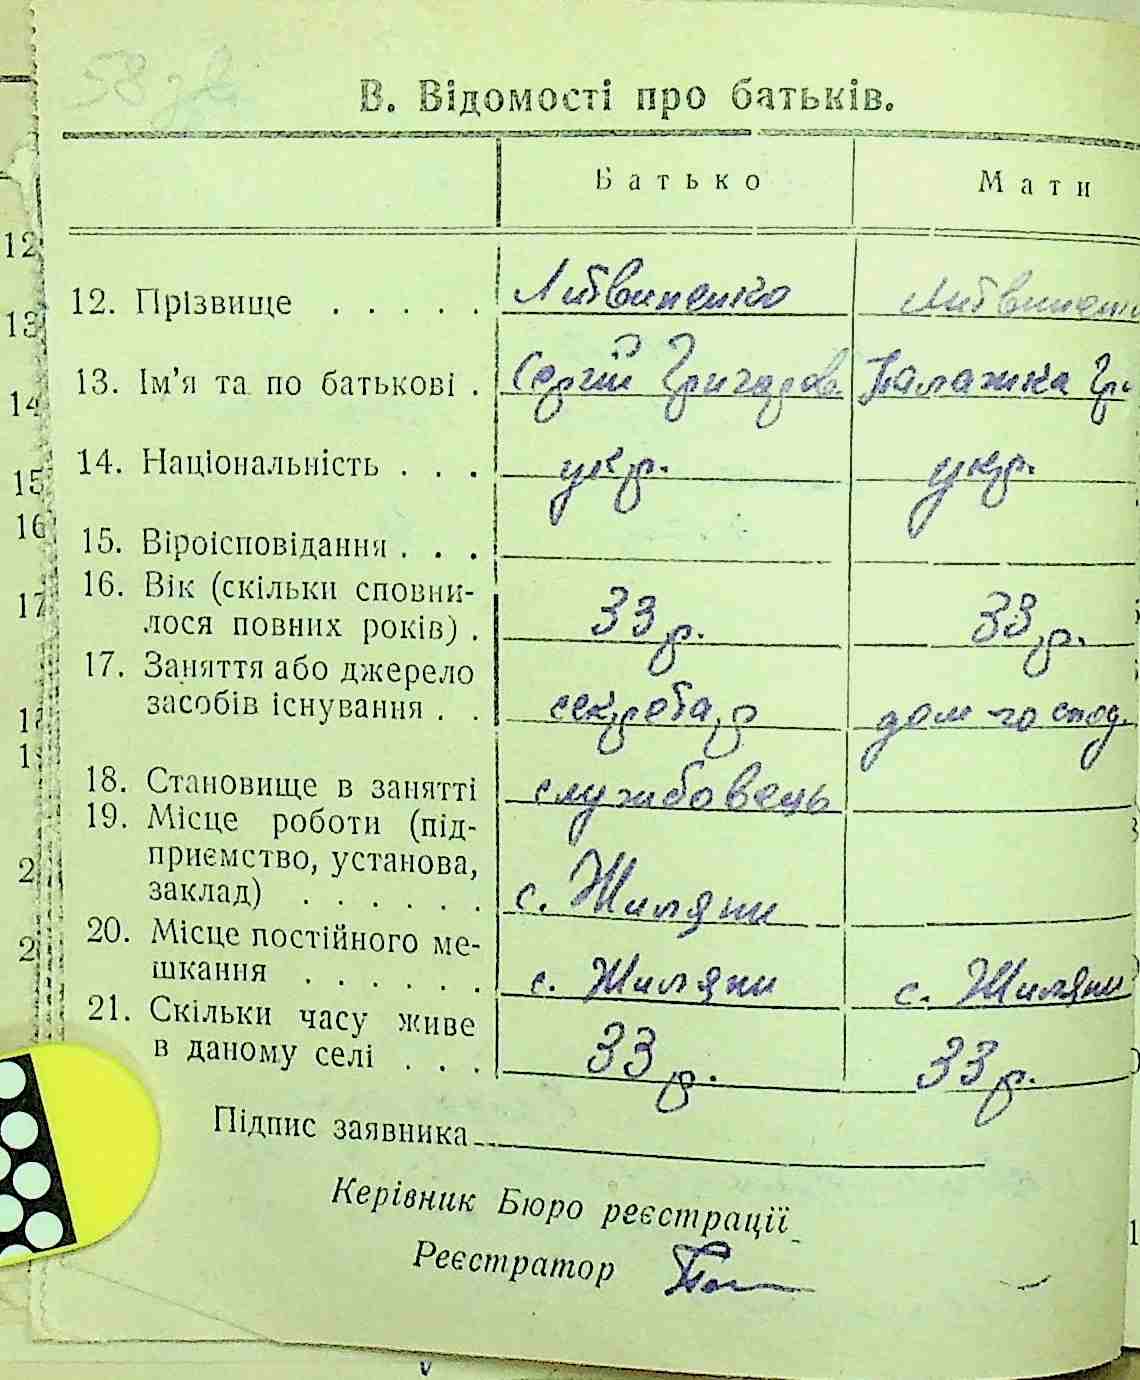 58 зв.
В. Відомості про батьків.
Батько Мати
12. Прізвище . . . . . Литвиненко Литвиненк
13. Ім'я та по батькові . Сергій Григоров. Палажка Гр
14. Національність . . . укр. укр.
15. Віроісповідання . . .
16. Вік (скільки сповни-
лося повних років) . 33 р. 33 р.
17. Заняття або джерело
засобів існування . . секретар дом-господ.
18. Становище в занятті службовець
19. Місце роботи (під-
приємство, установа,
заклад) . . . . . . с. Жиляни
20. Місце постійного ме-
шкання . . . . . . с. Жиляни с. Жиляни
21. Скільки часу живе
в даному селі . . . 33 р. 33 р.
Підпис заявника
Керівник Бюро реєстрації
Реєстратор